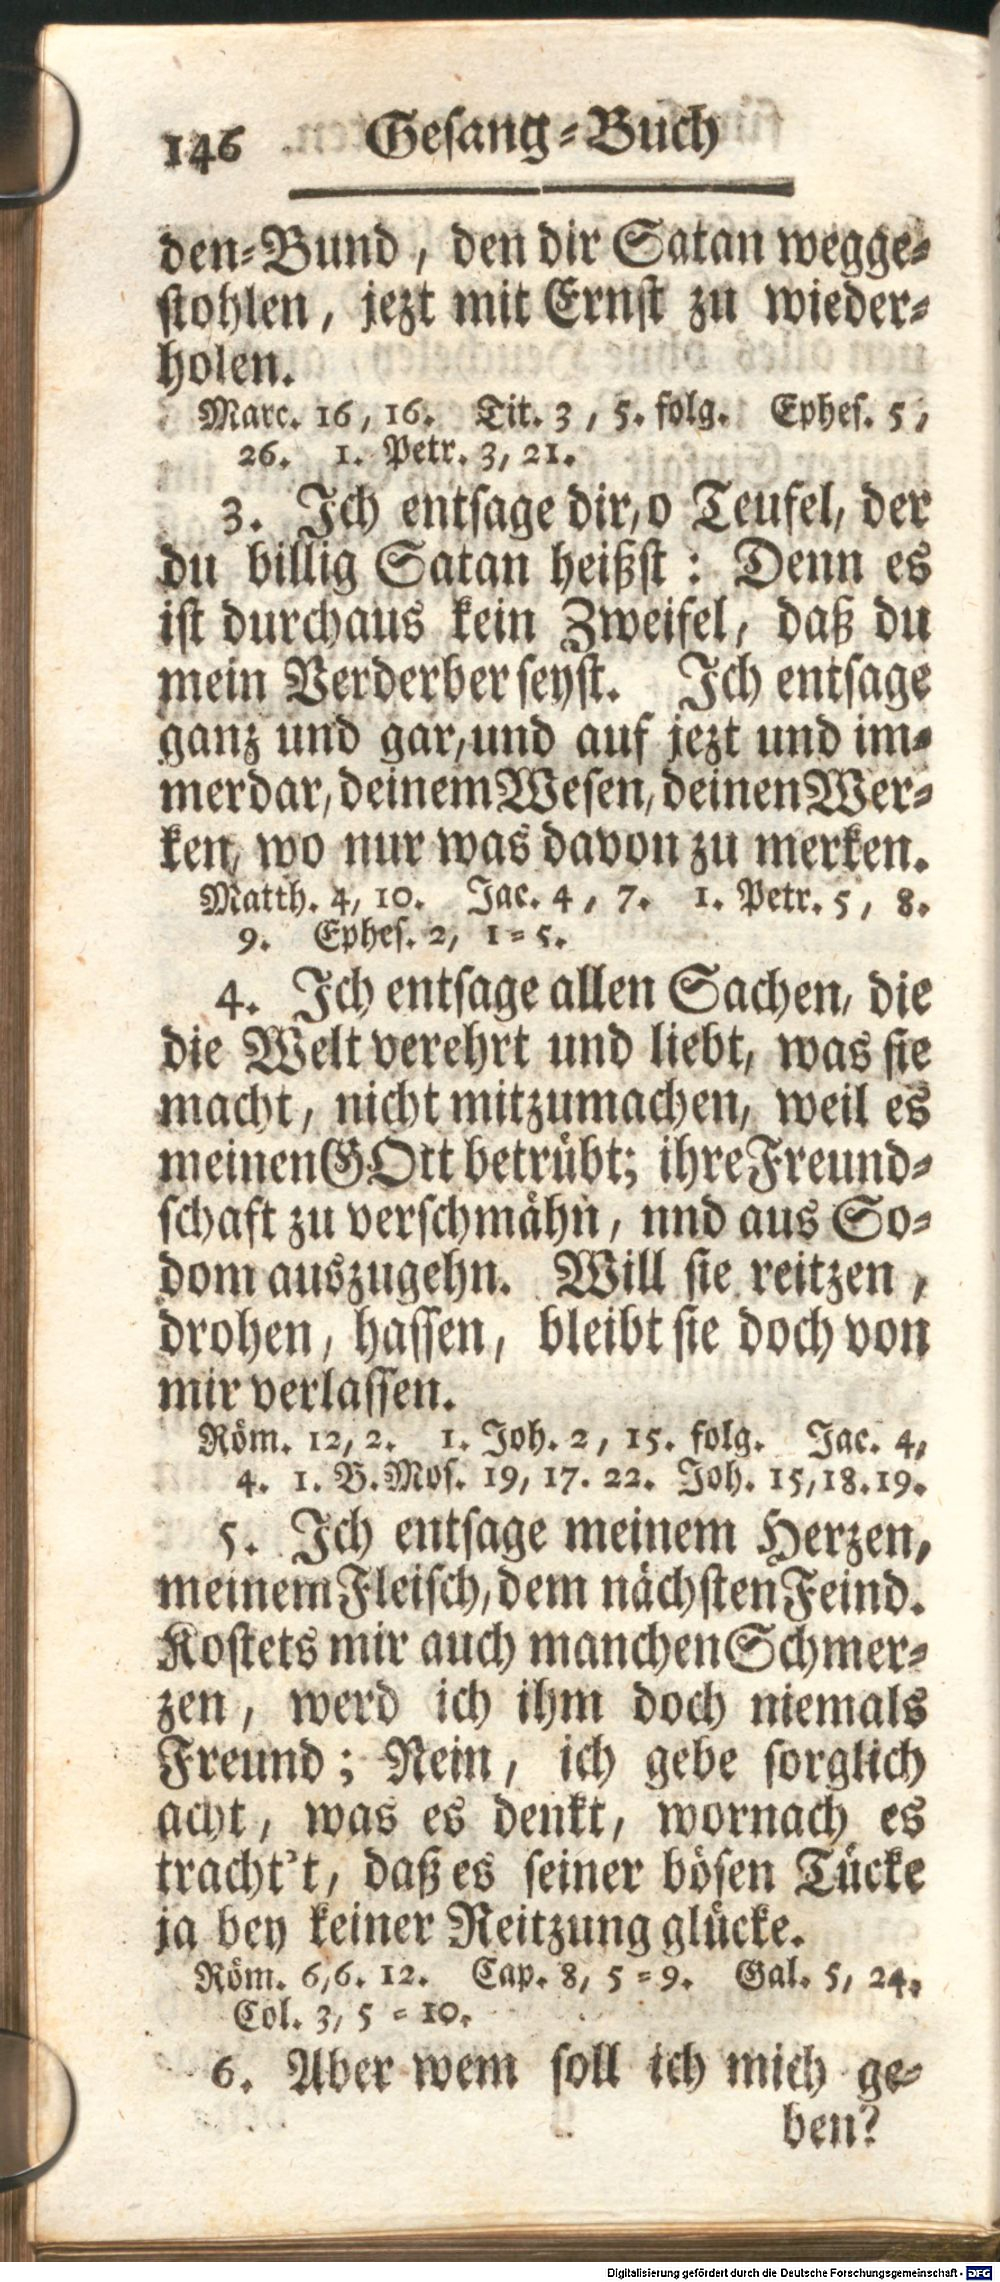 146 Gesang-Buch
den-Bund, den dir Satan wegge-
stohlen, jezt mit Ernst zu wieder-
holen.
Marc. 16, 16. Tit. 3, 5. folg. Ephes. 5,
26. 1. Petr. 3, 21.
3. Ich entsage dir, o Teufel, der
du billig Satan heißst: Denn es
ist durchaus kein Zweifel, daß du
mein Verderber seyst. Ich entsage
ganz und gar, und auf jezt und im-
merdar, deinem Wesen, deinen Wer-
ken, wo nur was davon zu merken.
Matth. 4, 10. Jac. 4, 7. 1. Petr. 5, 8.
9. Ephes. 2, 1-5.
4. Ich entsage allen Sachen, die
die Welt verehrt und liebt, was sie
macht, nicht mitzumachen, weil es
meinen GOtt betrübt; ihre Freund-
schaft zu verschmähn, nnd aus So-
dom auszugehn. Will sie reitzen,
drohen, hassen, bleibt sie doch von
mir verlassen.
Röm. 12, 2. 1. Joh. 2, 15. folg. Jac. 4,
4. 1. B. Mos. 19, 17. 22. Joh. 15, 18. 19.
5. Ich entsage meinem Herzen,
meinem Fleisch, dem nächsten Feind.
Kostets mir auch manchen Schmer-
zen, werd ich ihm doch niemals
Freund; Nein, ich gebe sorglich
acht, was es denkt, wornach es
tracht't, daß es seiner bösen Tücke
ja bey keiner Reitzung glücke.
Röm. 6, 6. 12. Cap. 8, 5-9. Gal. 5, 24.
Col. 3, 5-10.
6. Aber wem soll ich mich ge-
ben?
Digitalisierung gefördert durch die Deutsche Forschungsgemeinschaft - DFG